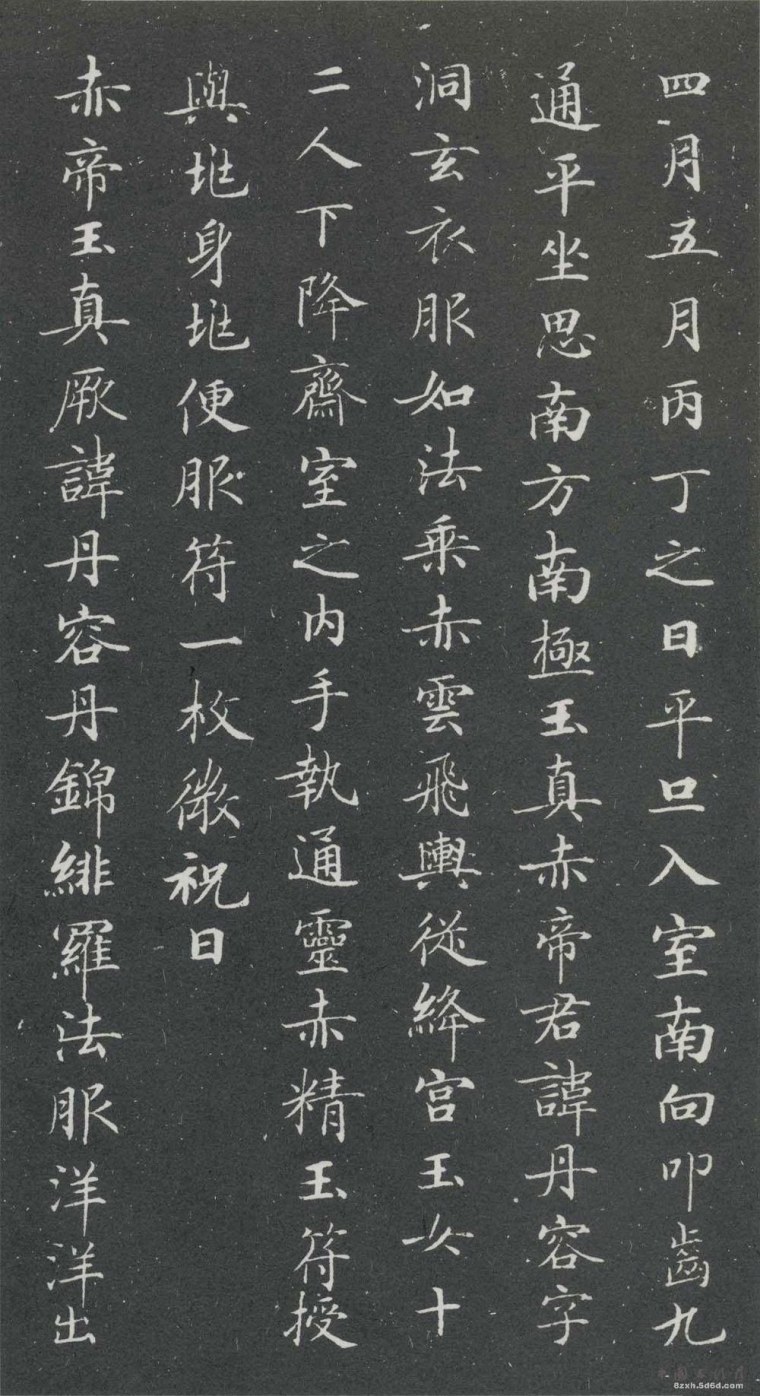 四月五月丙丁之日平旦入室南向叩齒九
通平坐思南方南極玉真赤帝君諱丹容字
洞玄衣服如法乘赤雲飛輿從絳宮玉女十
二人下降齋室之内手執通靈赤精玉符授
與地身地便服符一枚微祝曰
赤帝玉真厥諱丹容丹錦緋羅法服洋洋出
8zxh.5d6d.com